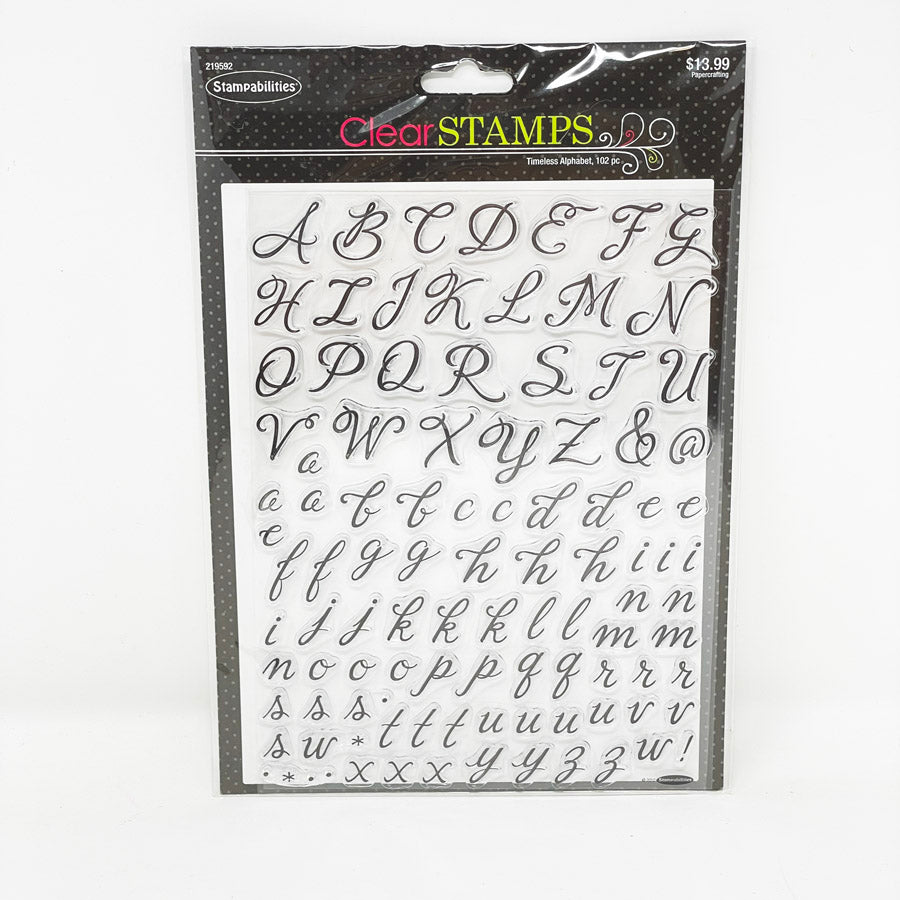 219592
$13.99
Papercrafting
Stampabilities®
Clear STAMPS
Timeless Alphabet, 102 pc
A B C D E F G
H I J K L M N
O P Q R S T U
V W X Y Z & @
a
a a b b c c d d e e
e
f f g g h h h i i i
n n
i j j k k k l l m m
n o o o p p q q r r r
s s s . t t t u u u u v v
s w * w !
. * . . x x x y y z z
Stampabilities